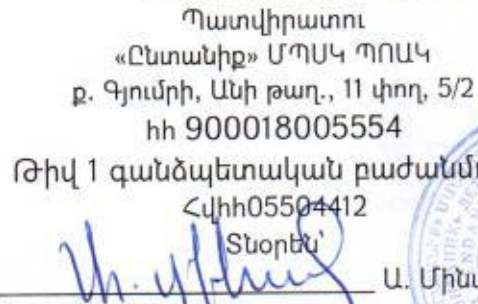 Պատվիրատու
«Ընտանիք» ՄՊՍԿ ՊՈԱԿ
ք. Գյումրի, Անի թաղ., 11 փող, 5/2
հհ 900018005554
Թիվ 1 գանձպետական
Հվհհ05504412
Տնօրեն՝
Ա.